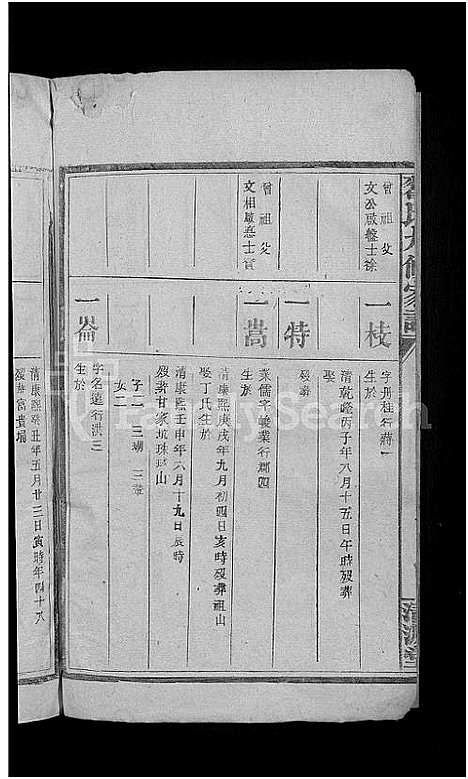 曾祖父
文公啟盤士徐
一枝
字丹桂行
生於
清乾隆丙子年八月十五日午時歿葬
一特
歿葬
曾祖父
文相啟
一嵩
業儒字峻業行
生於
清康熙庚戌年九月初四日亥時歿葬祖山
娶丁氏生於
清康熙壬申年六月十九日辰時
歿葬甘家坑珠山
子二 三瑚 三
女二
一崙
字名遠行洪三
生於
清康熙癸丑年五月廿三日寅時年四十六
歿葬富貴塲
FamilySearch